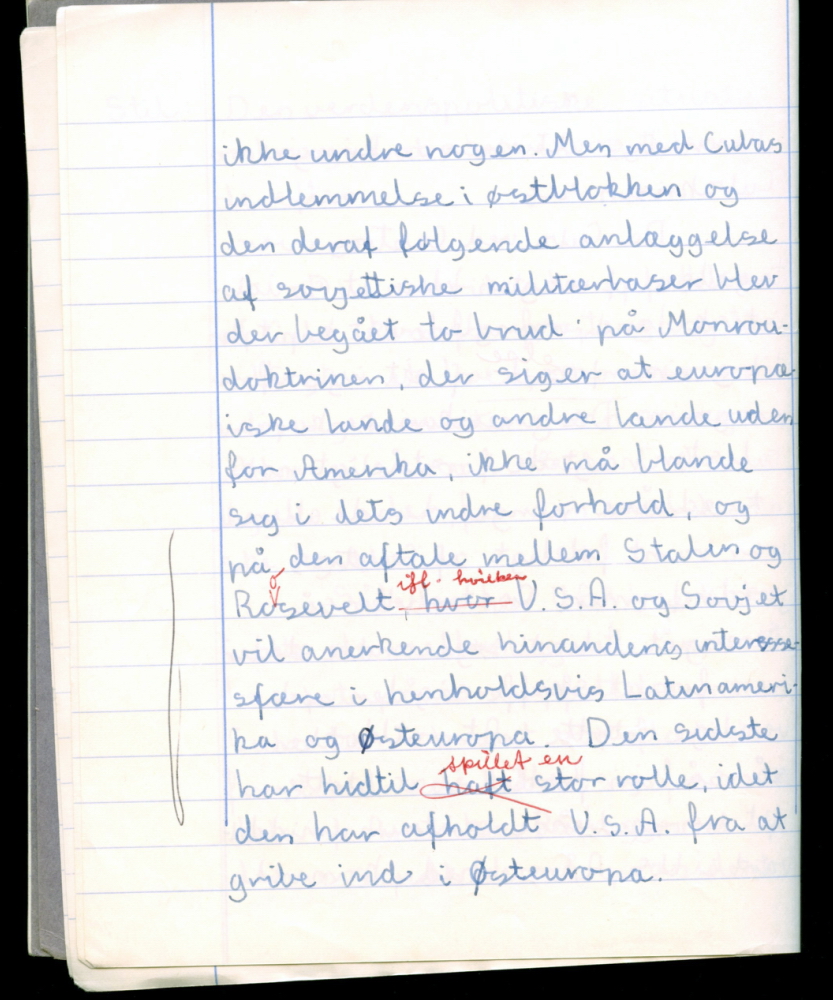 ikke undre nogen. Men med Cubas
indlemmelse i østblokken og
den deraf følgende anlæggelse
af sovjettiske militærbaser blev
der begået to brud på Monrou-
doktrinen, der siger at europæ-
iske lande og andre lande uden
for Amerika, ikke må blande
sig i dets indre forhold, og
på den aftale mellem Stalin og
o ifl. hvilken
Rosevelt, hvor U.S.A. og Sovjet
vil anerkende hinandens interesse-
sfære i henholdsvis Latinameri-
ka og Østeuropa. Den sidste
spillet en
har hidtil haft stor rolle, idet
den har afholdt U.S.A. fra at
gribe ind i Østeuropa.